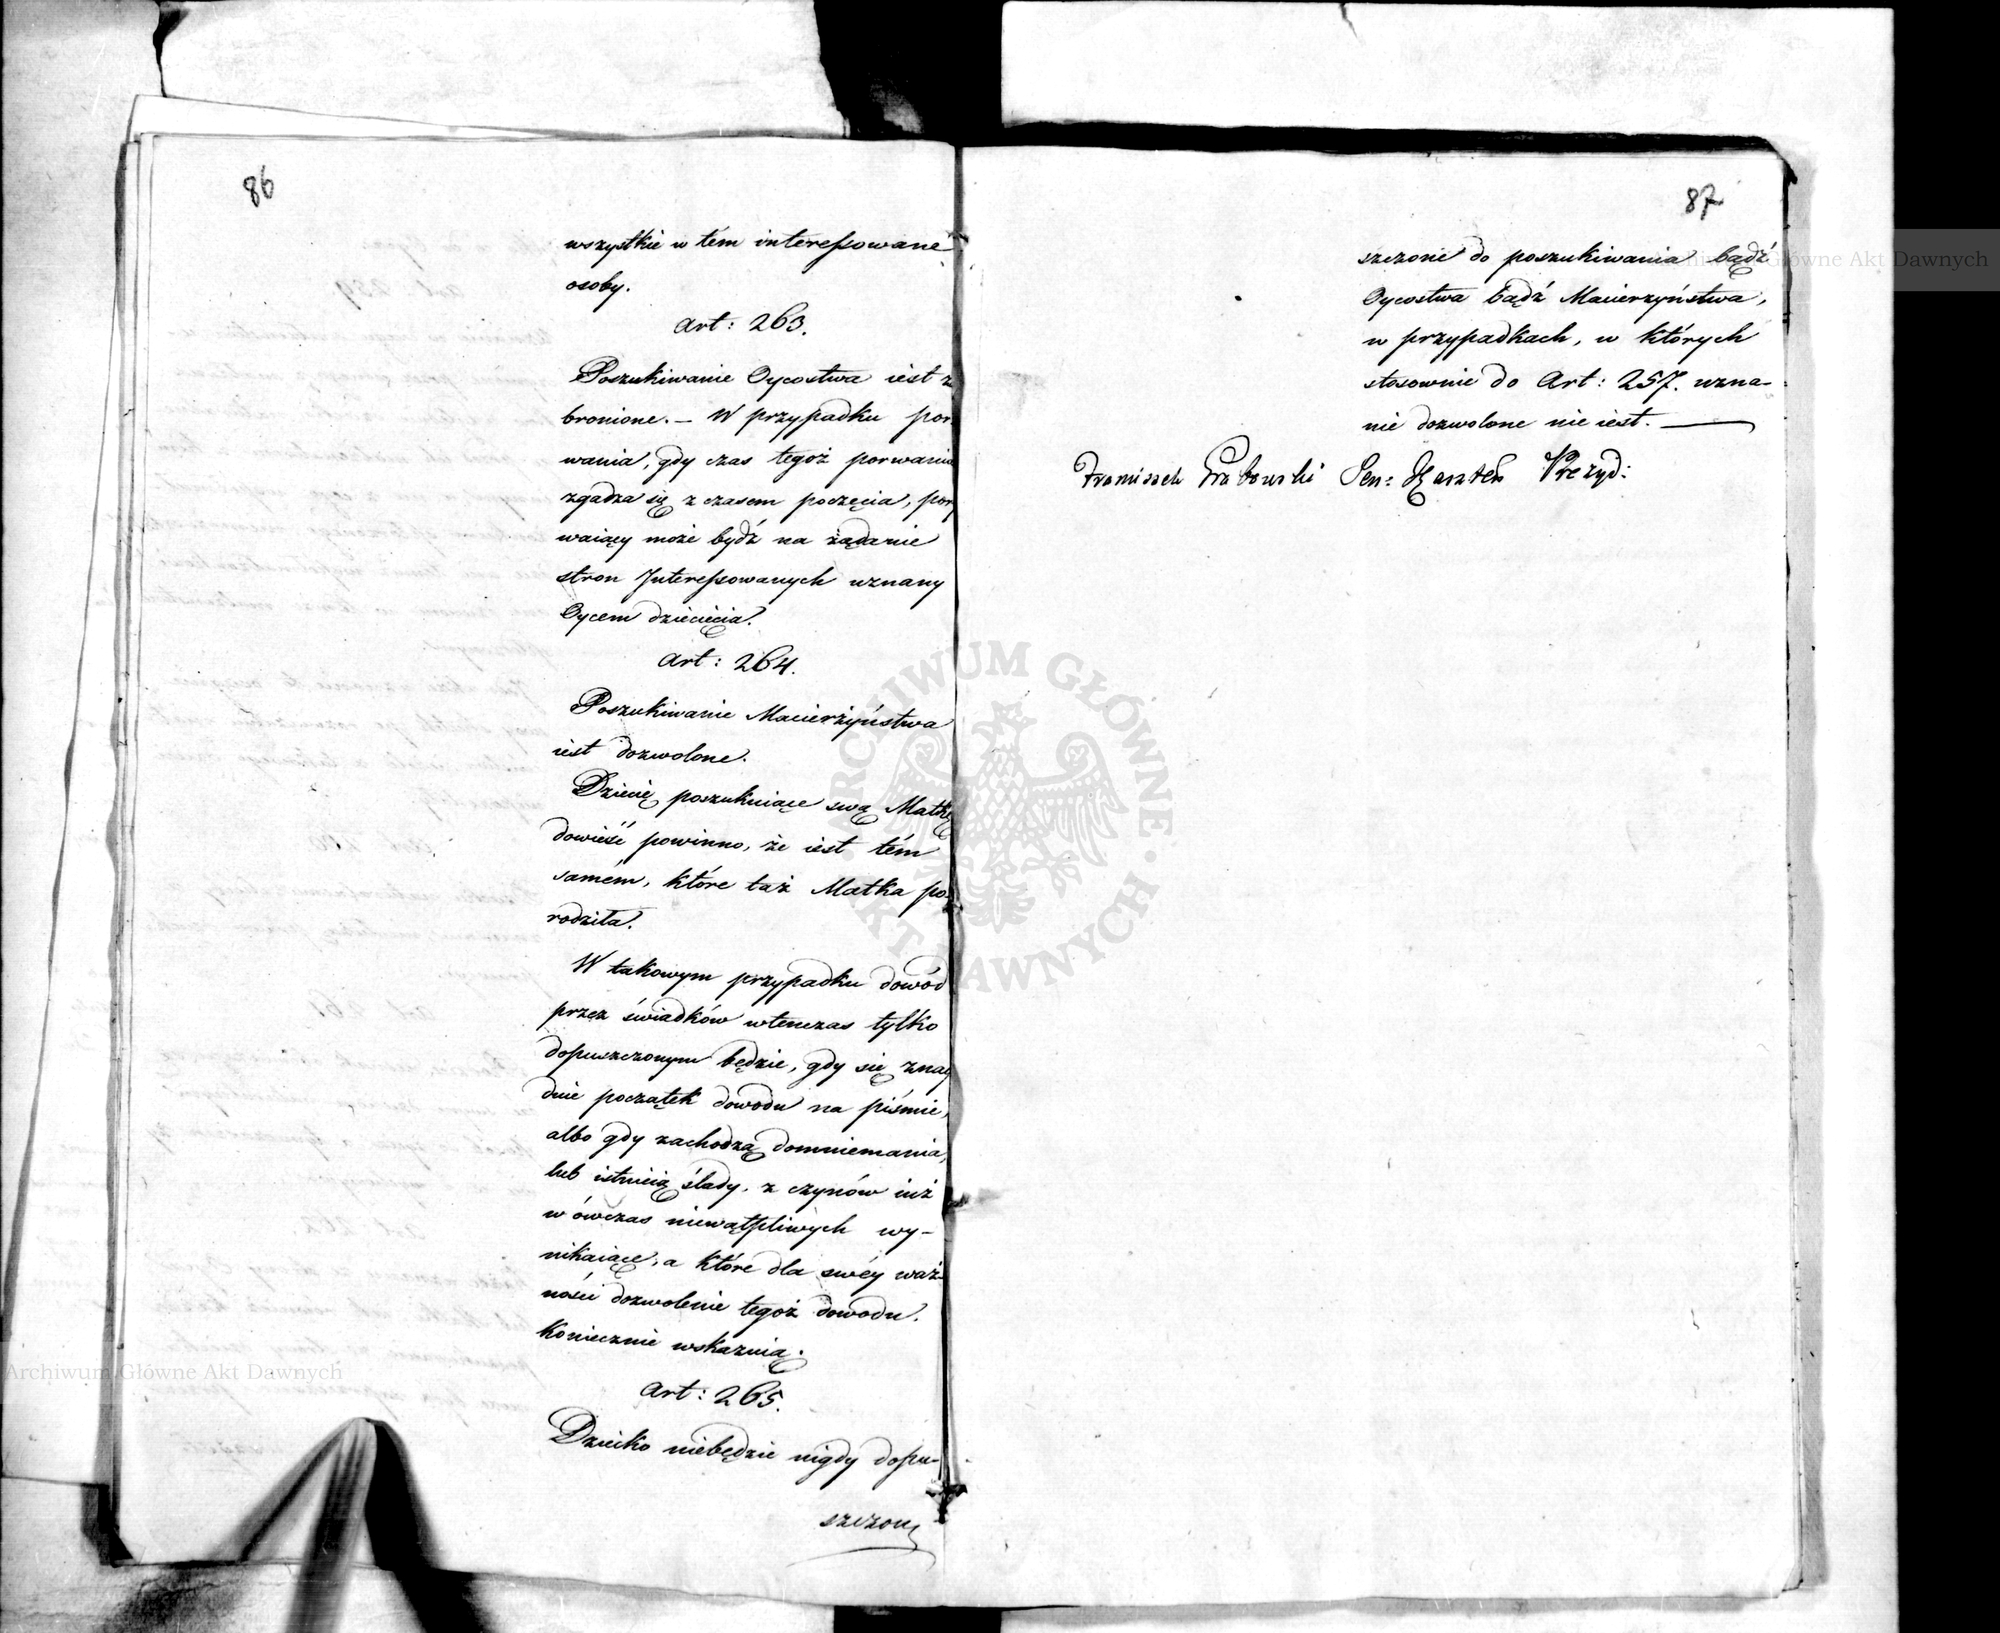 86
wszystkie w tém interessowane
osoby.
Art: 263.
Poszukiwanie Oycostwa iest za
bronione. – W przypadku por
wania, gdy czas tegoż porwania
zgadza się z czasem poczęcia, pory
waiący może bydź na żądanie
stron Interessowanych uznany
Oycem dziecięcia.
Art: 264.
Poszukiwanie Macierzyństwa
iest dozwolone.
Dziecię poszukuiące swą Matkę
dowieść powinno, że iest tém
samém, które taż Matka po-
rodziła.
W takowym przypadku dowód
przez świadków wtenczas tylko
dopuszczonym będzie, gdy się znay
dnie początek dowodu na piśmie,
albo gdy zachodzą domniemania,
lub istnieią ślady, z czynów iuż
w ówczas niewątpliwych wy-
nikaiące, a które dla swéy waż-
ności dozwolenie tegoż dowodu.
koniecznie wskazuią.
Art: 265.
Dziecko niebędzie nigdy dopu-
szczon
87
szczone do poszukiwania bądź
Oycostwa bądź Macierzyństwa,
w przypadkach, w których
stosownie do Art: 257. uzna-
nie dozwolone nie iest.
Franciszek Grabowski Sen: Kasztel: Prezyd:
ARCHIWUM GŁÓWNE AKT DAWNYCH
Archiwum Główne Akt Dawnych
Archiwum Główne Akt Dawnych